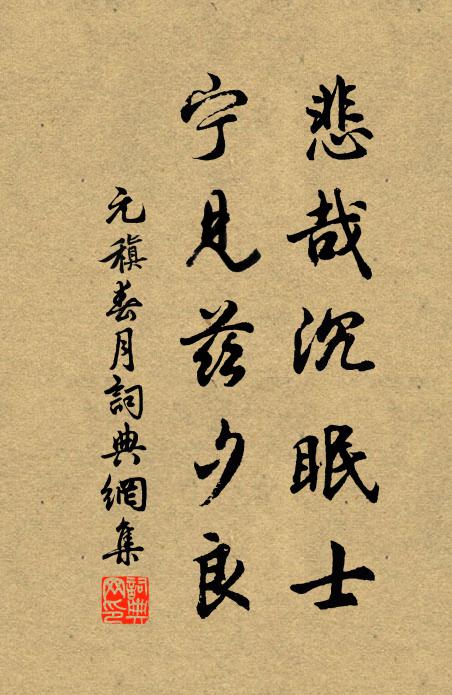 悲哉沉眠士
宁見兹夕良
元稹春月詞典網集
詞典网印